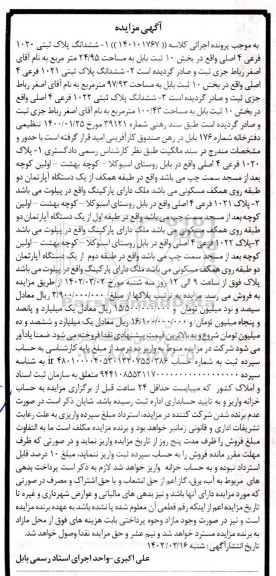 آگهی مزایده
به موجب پرونده اجرائی کلاسه (( ۱۴۰۱۰۱۷۶۷ )) ۱- ششدانگ پلاک ثبتی ۱۰۲۰
فرعی ۴ اصلی واقع در بخش ۱۰ ثبت بابل به مساحت ۲۴/۹۵ متر مربع به نام آقای
اصغر رباط جزی ثبت و صادر گردیده است ۲- ششدانگ پلاک ثبتی ۱۰۲۱ فرعی ۴
اصلی واقع در بخش ۱۰ ثبت بابل به مساحت ۹۷/۹۳ مترمربع به نام آقای اصغر رباط
جزی ثبت و صادر گردیده است ۳- ششدانگ پلاک ثبتی ۱۰۲۲ فرعی ۴ اصلی واقع
در بخش ۱۰ ثبت بابل به مساحت ۱۰۰/۴۳ مترمربع به نام آقای اصغر رباط جزی ثبت
و صادر گردیده است طبق سند رهنی شماره ۳۹۱۲۱ مورخ ۱۴۰۰/۰۱/۲۵ تنظیمی
دفترخانه شماره ۱۷۶ بابل در رهن صندوق کارآفرینی امید قرار گرفته است با حدود و
مشخصات مندرج در سند مالکیت طبق نظر کارشناس رسمی دادگستری ۱- پلاک
۱۰۲۰ فرعی ۴ اصلی واقع در بابل روستای اسبوکلا - کوچه بهشت - اولین کوچه
بعد از مسجد سمت چپ می باشد واقع در طبقه همکف از یک دستگاه آپارتمان دو
طبقه روی همکف مسکونی می باشد ملک دارای پارکینگ واقع در پیلوت می باشد
۲- پلاک ۱۰۲۱ فرعی ۴ اصلی واقع در بابل روستای اسبوکلا - کوچه بهشت - اولین
کوچه بعد از مسجد سمت چپ می باشد واقع در طبقه اول از یک دستگاه آپارتمان دو
طبقه روی همکف مسکونی می باشد ملک دارای پارکینگ واقع در پیلوت می باشد
۳- پلاک ۱۰۲۲ فرعی ۴ اصلی واقع در بابل روستای اسبوکلا - کوچه بهشت - اولین
کوچه بعد از مسجد سمت چپ می باشد واقع در طبقه دوم از یک دستگاه آپارتمان
دو طبقه روی همکف مسکونی می باشد ملک دارای پارکینگ واقع در پیلوت می باشد
پلاک فوق از ساعت ۹ الی ۱۲ روز سه شنبه مورخ ۱۴۰۲/۰۳/۰۲ از طریق مزایده
به فروش می رسد. مزایده به ترتیب پلاکها از مبلغ ریال معادل
سیصد و نود میلیون تومان و ریال معادل یک میلیارد و پانصد
و پنجاه میلیون تومان و ریال معادل یک میلیارد و ششصد و ده
میلیون تومان شروع و به بالاترین قیمت پیشنهادی نقدا فروخته می شود ضمنا یادآور
می شود شرکت در مزایده منوط به واریز ده درصد از مبلغ پایه کارشناسی به حساب
سپرده ثبت به شماره حساب به شناسه
واریز متعلق به سازمان ثبت اسناد
و املاک کشور که میبایست حداقل ۲۴ ساعت قبل از برگزاری مزایده به حساب
خزانه واریز و به تایید حسابداری اداره ثبت رسیده باشد. شایان ذکر است در صورت
عدم برنده شدن شرکت کننده در مزایده، استرداد مبلغ سپرده واریزی به علت رعایت
تشریفات اداری و قانونی زمانبر خواهد بود و برنده مزایده مکلف است ما به التفاوت
مبلغ فروش را ظرف مدت پنج روز از تاریخ مزایده واریز نماید و در صورتی که ظرف
مهلت مقرر مانده فروش را به حساب سپرده ثبت واریز ننماید، مبلغ ۱۰ درصد قابل
استرداد نبوده و به حساب خزانه واریز خواهد شد لازم به ذکر است پرداخت بدهی
های مربوط به آب، برق، گاز اعم از حق انشعاب و یا حق اشتراک و مصرف در صورتی
که مورد مزایده دارای آنها باشد و نیز بدهی های مالیاتی و عوارض شهرداری و غیره تا
تاریخ مزایده اعم از اینکه رقم قطعی آن معلوم شده یا نشده باشد به عهده برنده مزایده
است و نیز در صورت وجود مازاد وجوه پرداختی بابت هزینه های فوق از محل مازاد
به برنده مزایده مسترد خواهد شد و نیم عشر و حق مزایده نقدا وصول خواهد شد.
تاریخ انتشار آگهی : شنبه ۱۴۰۲/۰۲/۱۶
علی اکبری - واحد اجرای اسناد رسمی بابل